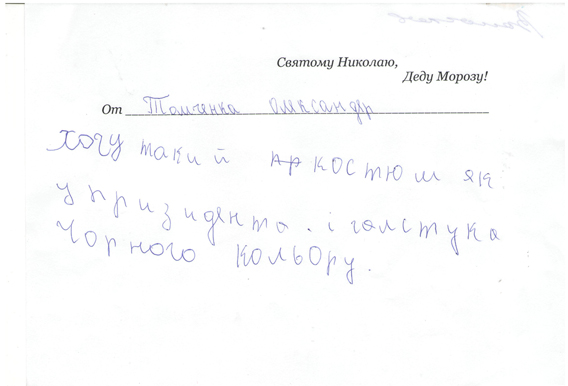 Святому Николаю,
Деду Морозу!
От Томченка Олександр
хочу такий костюм як
у призидента. і галстука
чорного кольору.